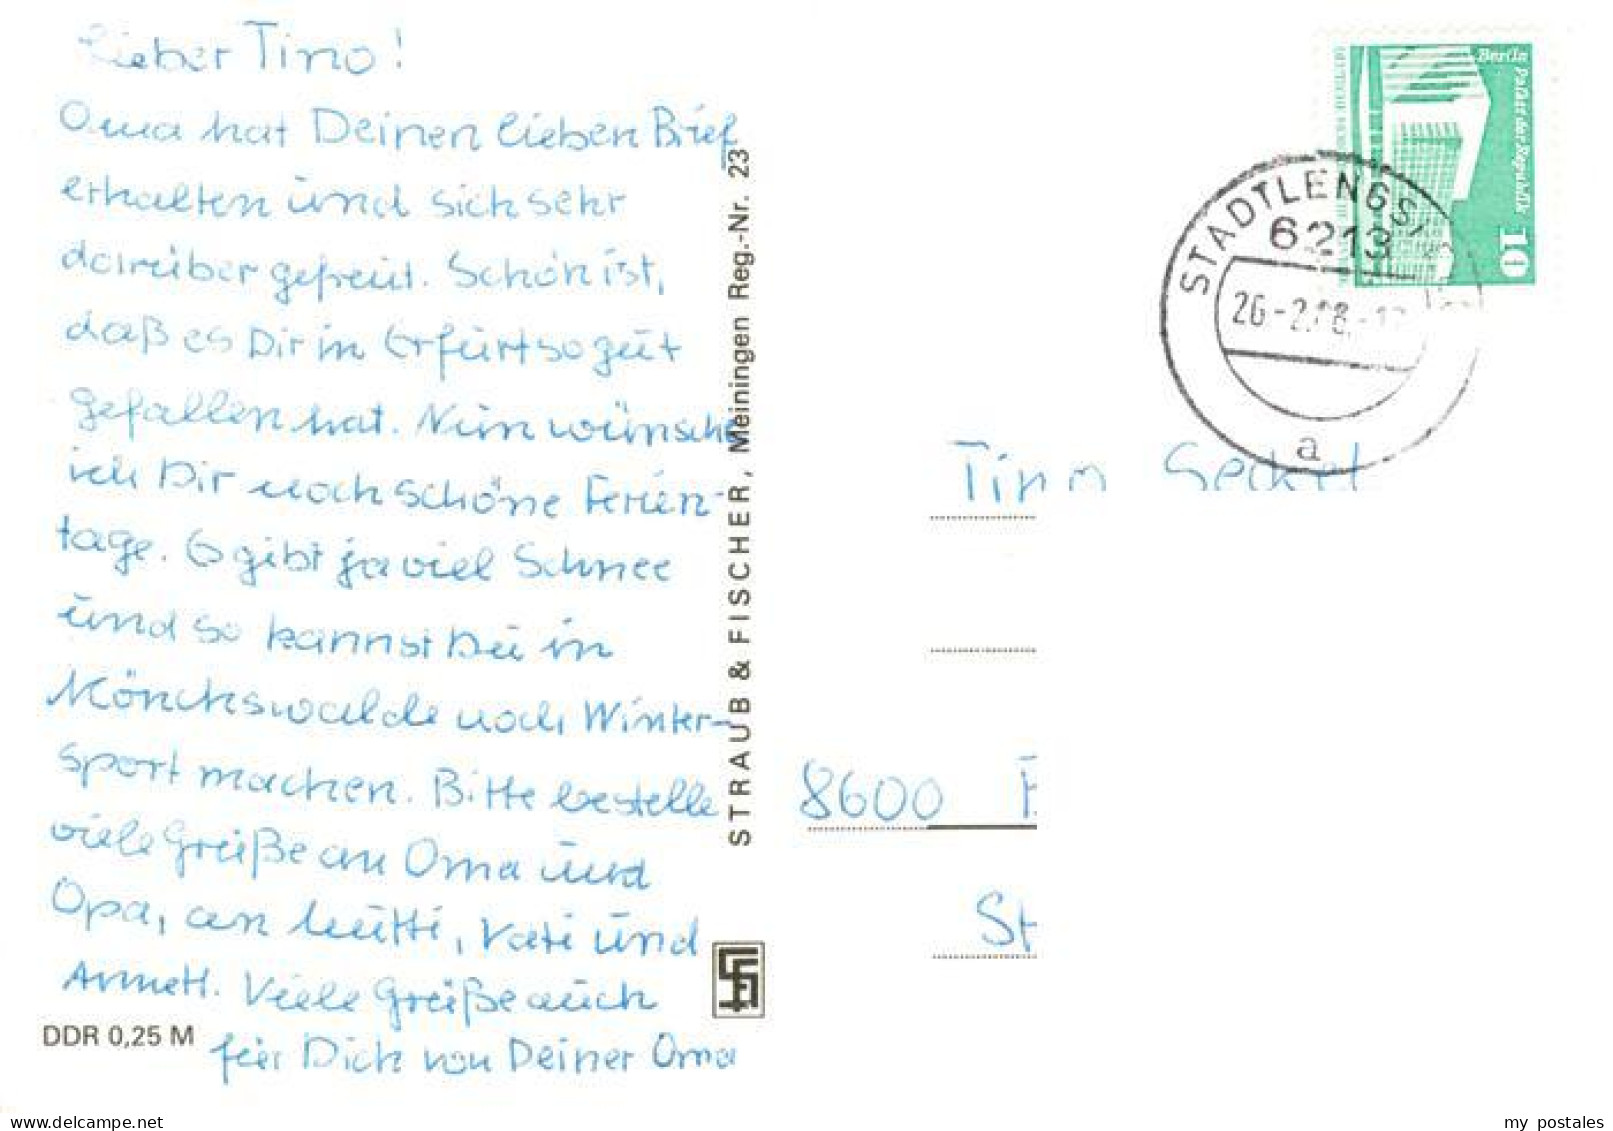 Lieber Tino!
Oma hat Deinen lieben Brief
erhalten und sich sehr
darüber gefreut. Schön ist,
daß es Dir in Erfurt so gut
gefallen hat. Nun wünsche
ich Dir noch schöne Ferien-
tage. Es gibt ja viel Schnee
und so kannst Du in
Mönchswalde noch Winter-
sport machen. Bitte bestelle
viele Grüße an Oma und
Opa, an Mutti, Vati und
Annett. Viele Grüße auch
für Dich von Deiner Oma
DDR 0,25 M
STRAUB & FISCHER, Meiningen Reg.-Nr. 23
Berlin Palast der Republik
10
STADTLENGSF
6213
a
Tino
8600
St
www.delcampe.net
my postales